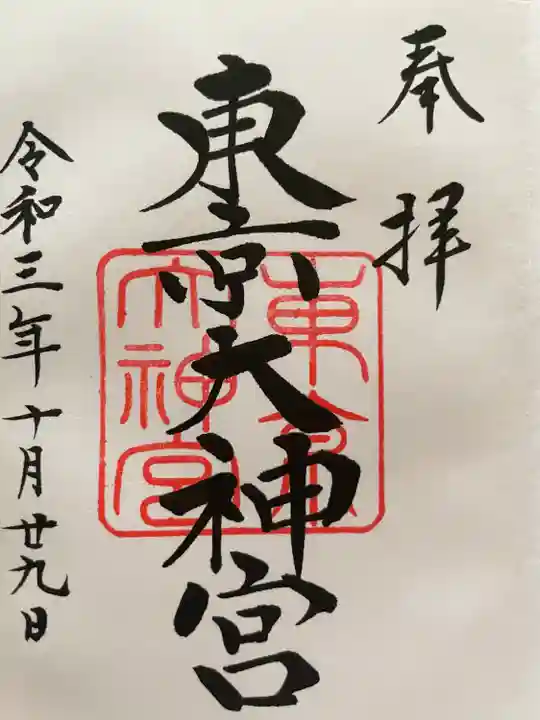 奉拝
東京大神宮
東京
大神宮
令和三年十月廿九日